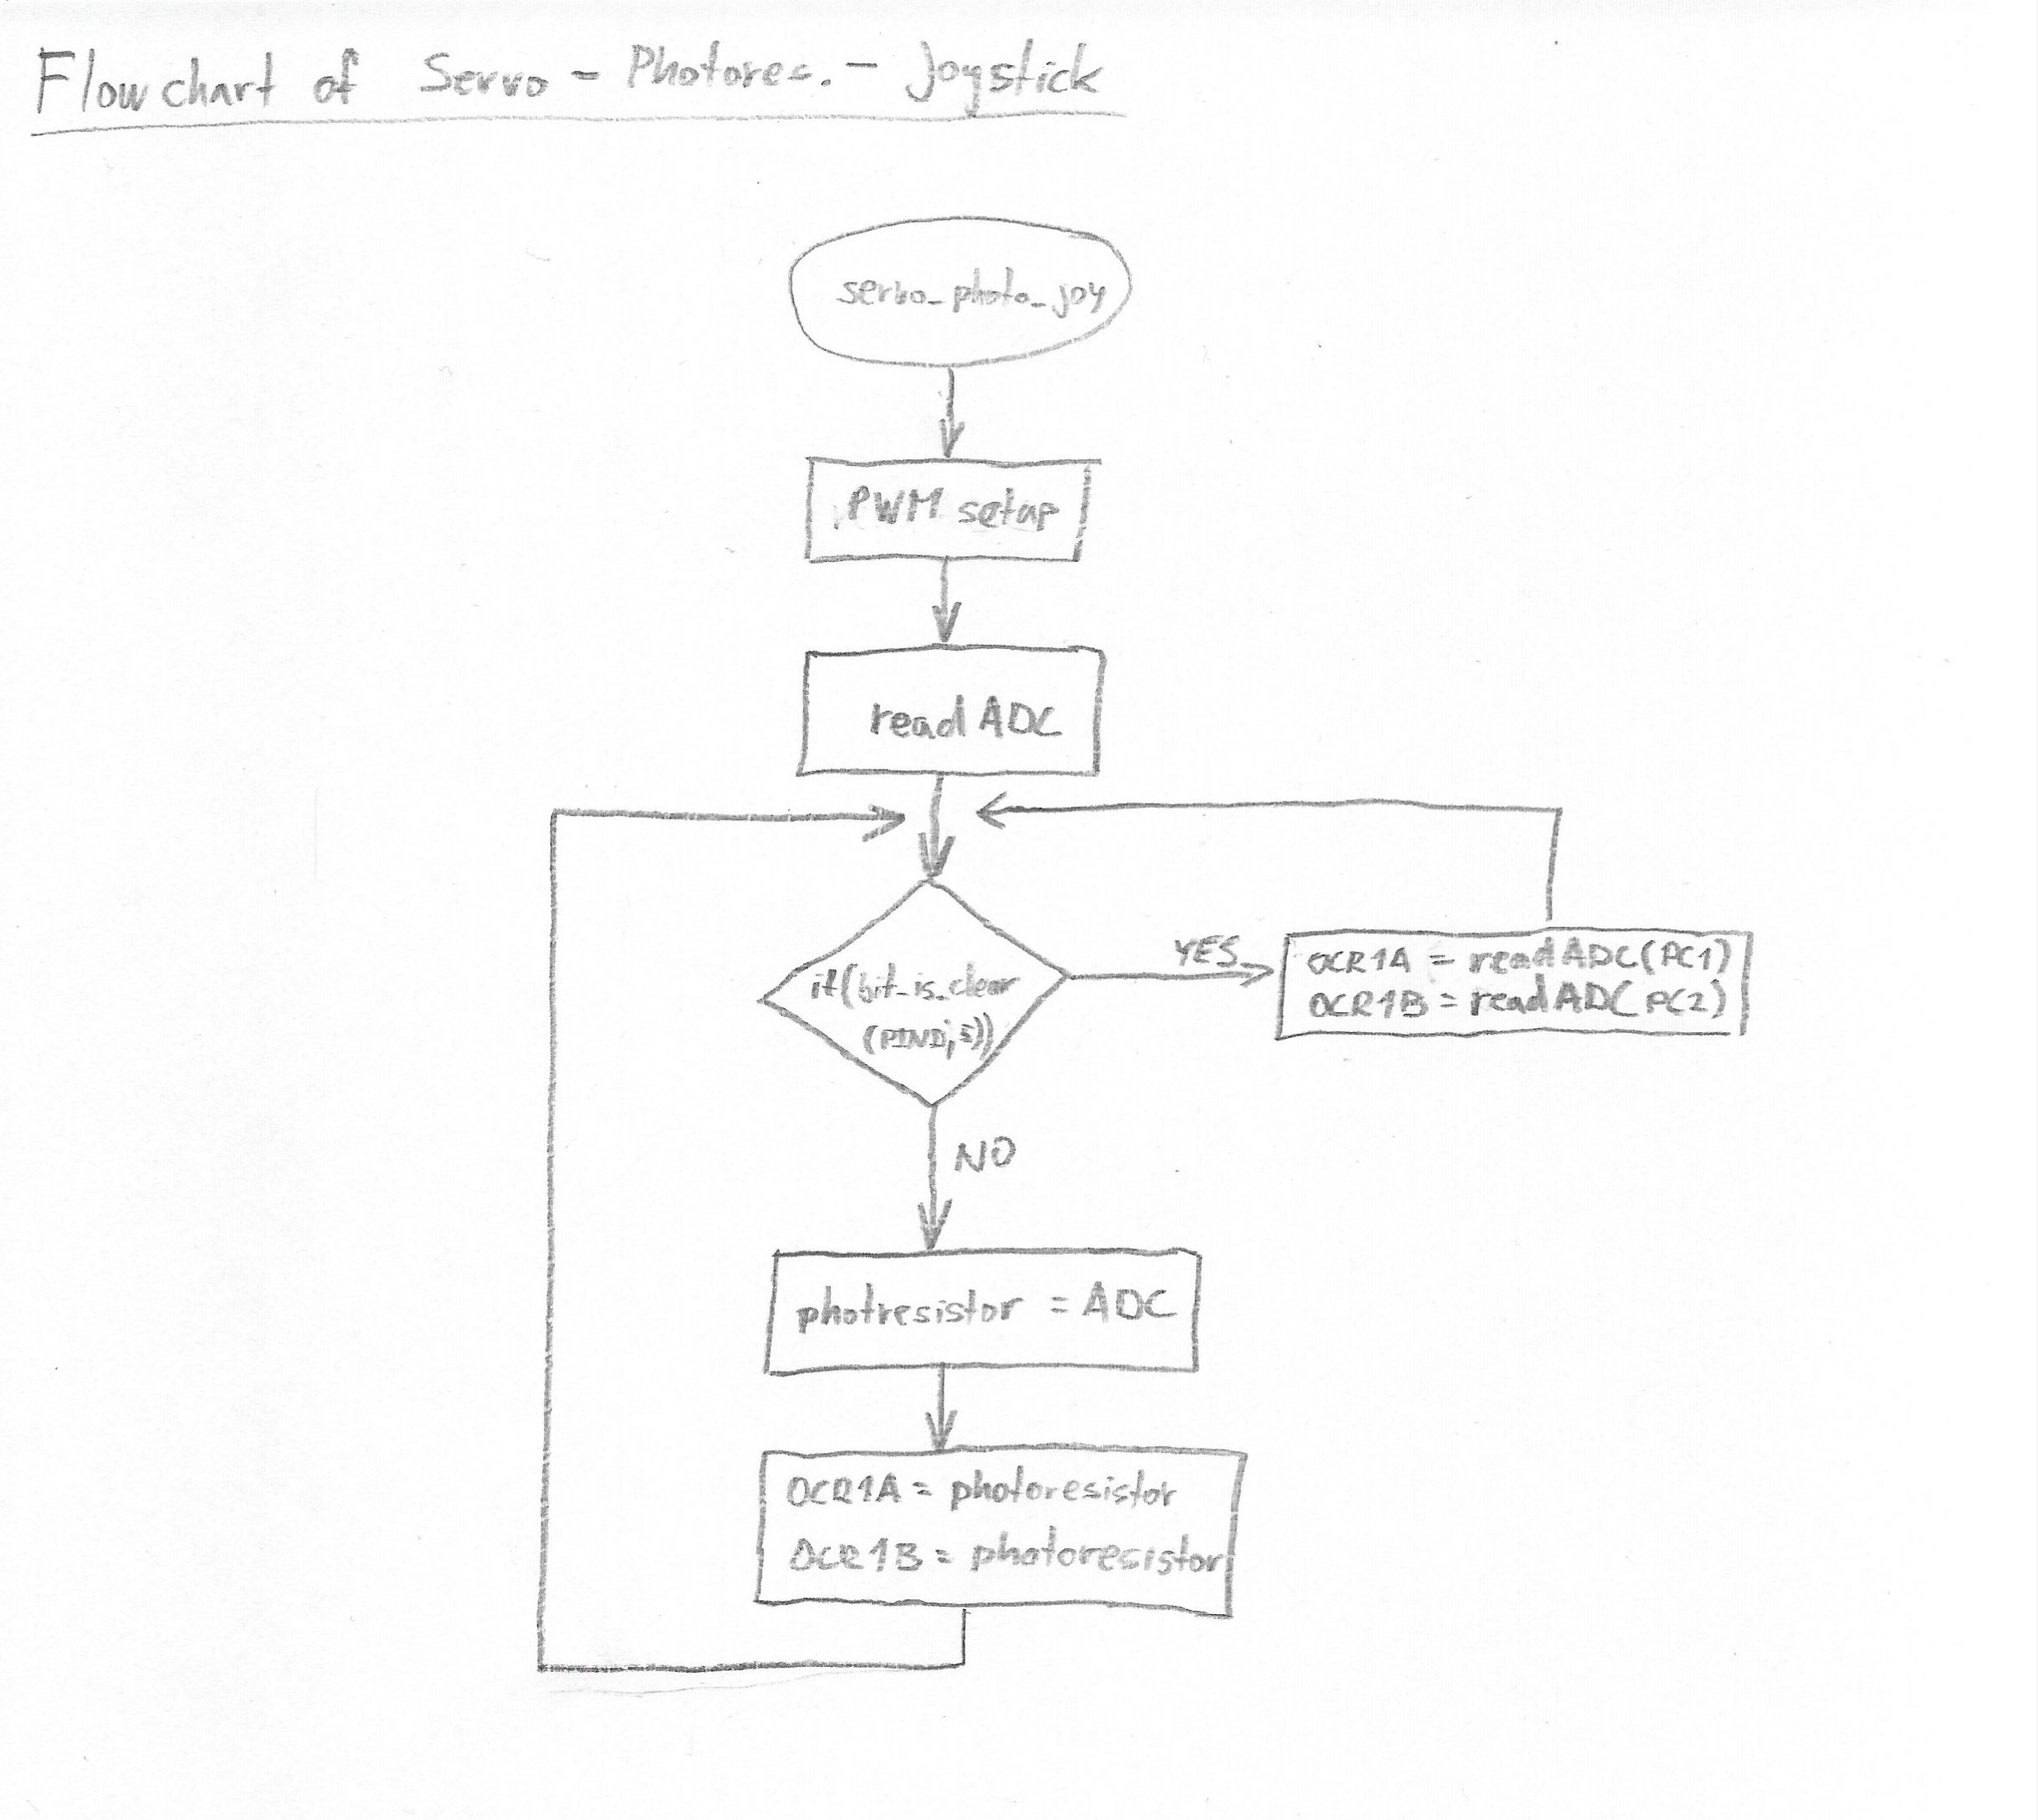 Flowchart of Servo - Photores. - Joystick
servo_photo_joy
PWM setup
read ADC
if(bit_is_clear
(PIND,5))
YES
OCR1A = readADC(PC1)
OCR1B = readADC(PC2)
NO
photresistor = ADC
OCR1A = photoresistor
OCR1B = photoresistor